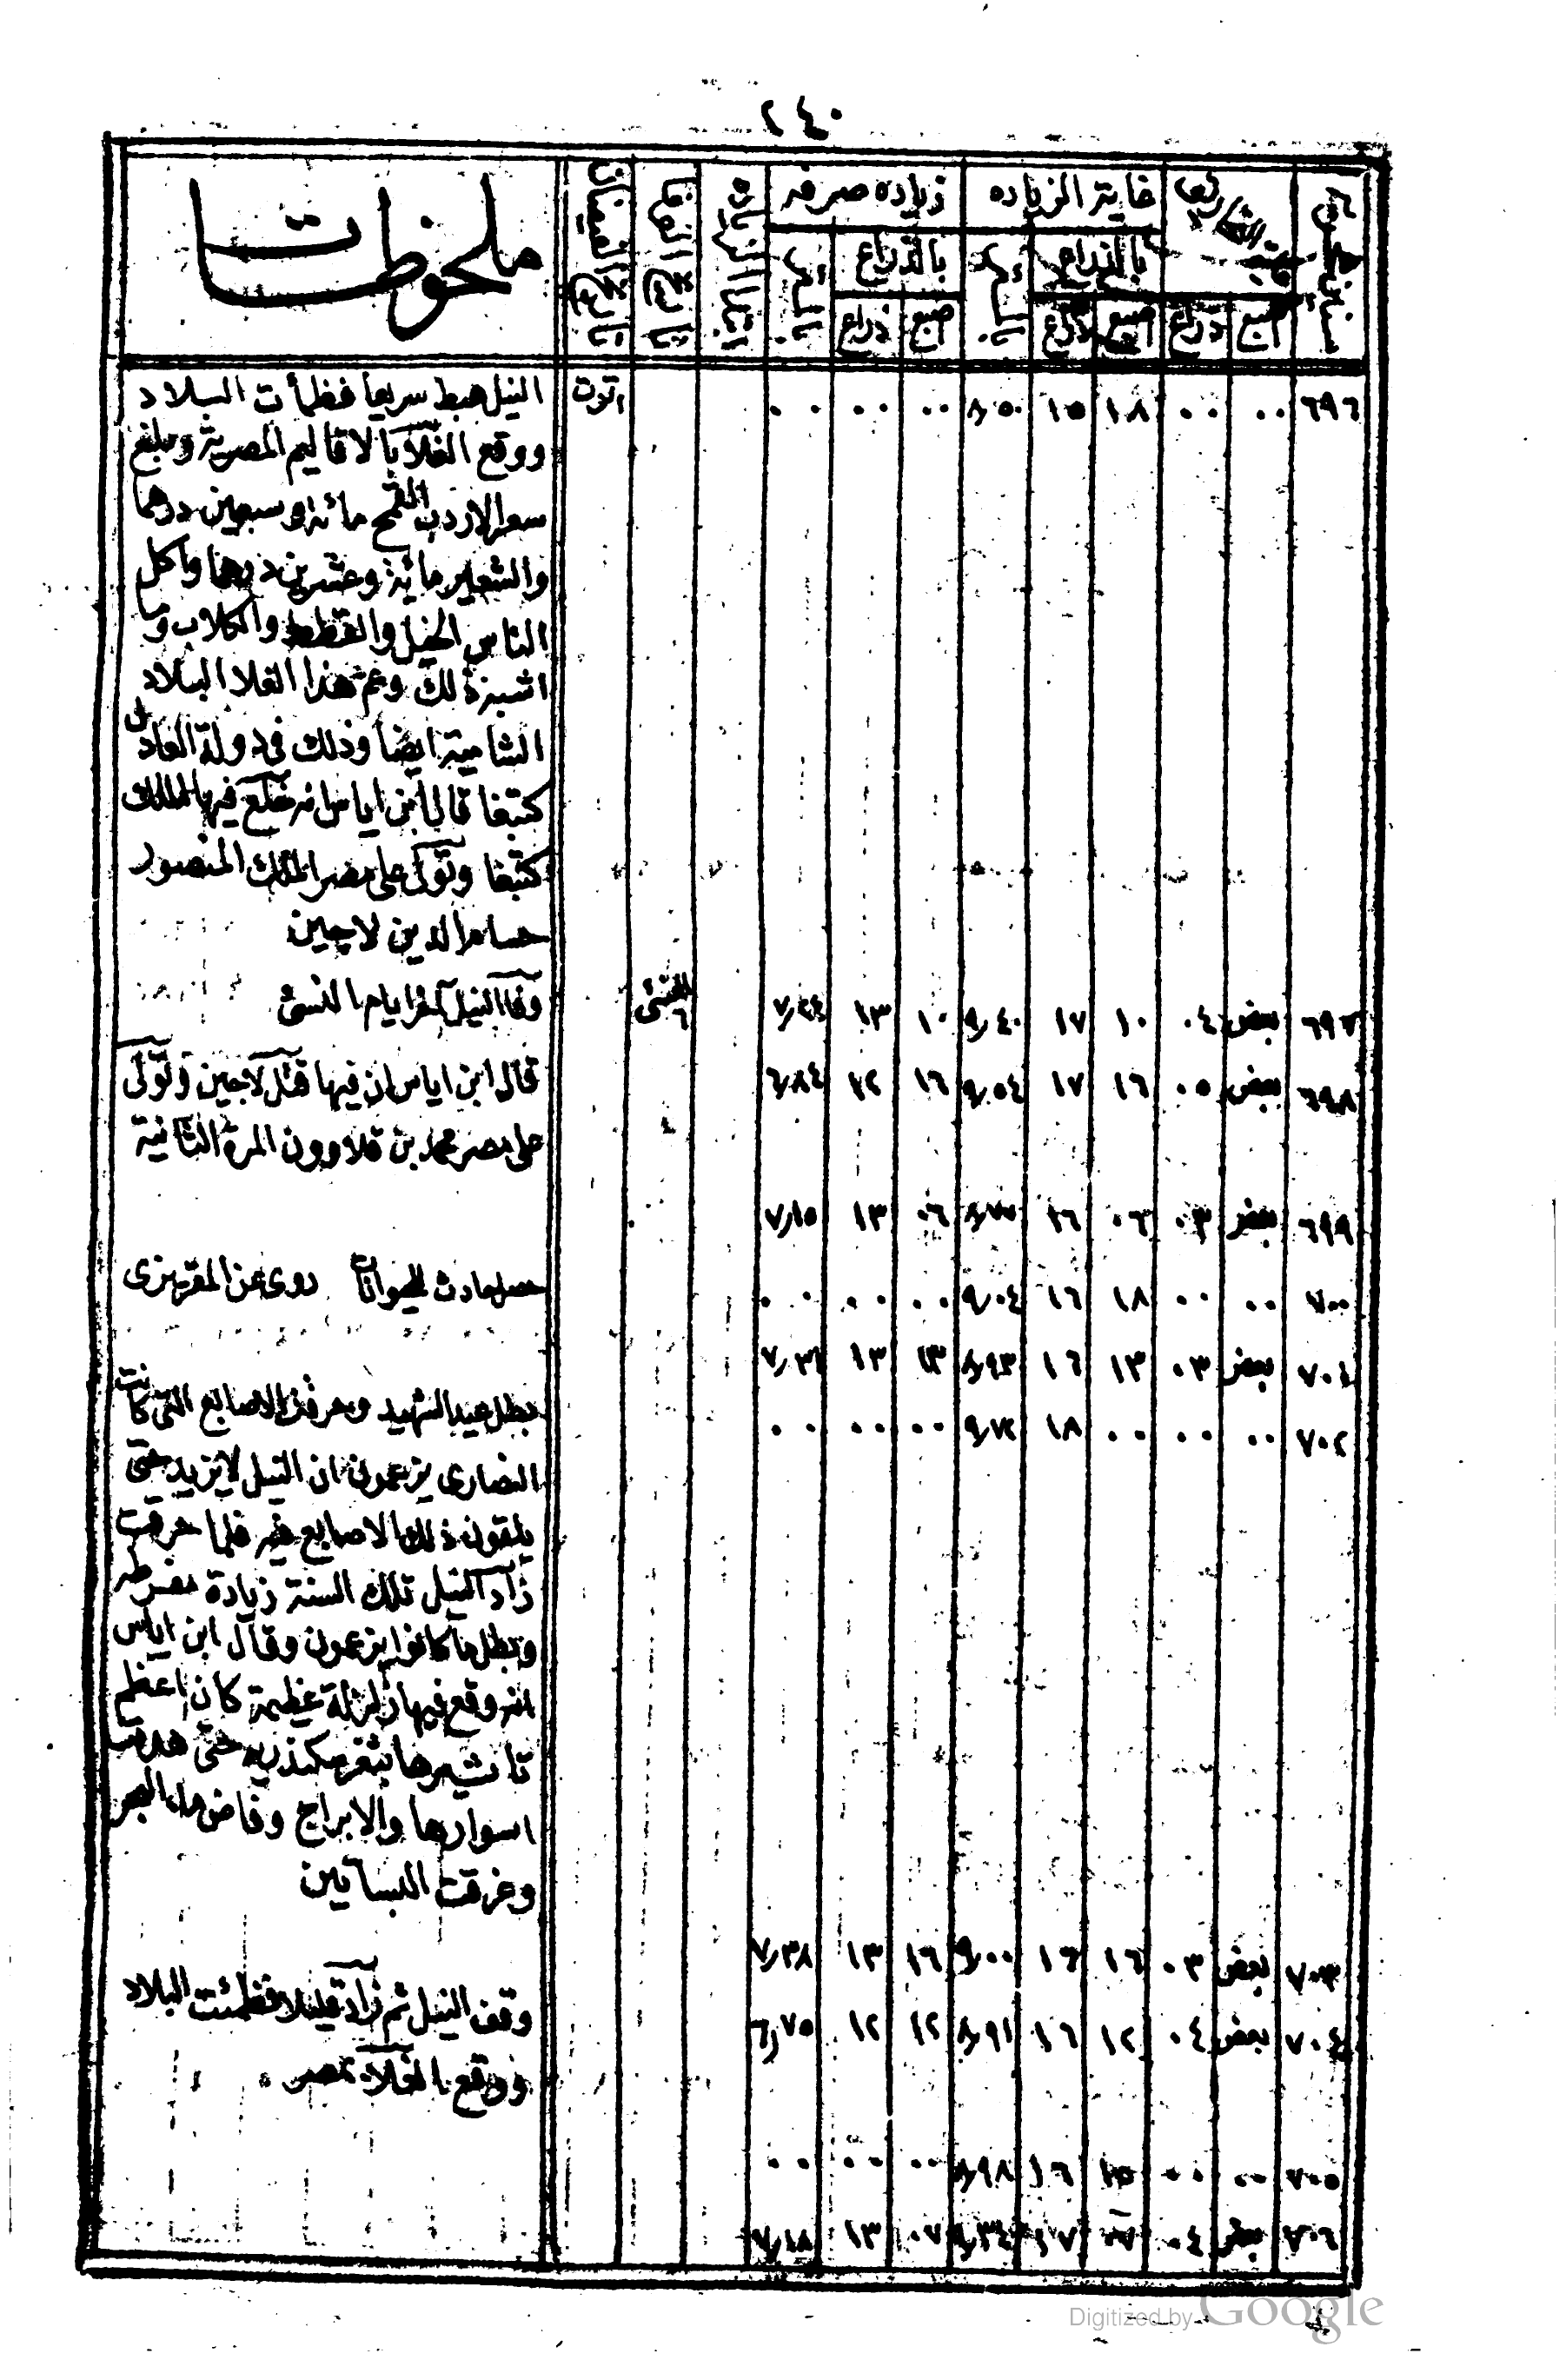 ٢٤٠
غاية الزياده
زياده صرفه
ملحوظات
بالذراع
بالذراع
اصبع ذراع اصبع ذراع اصبع ذراع
٦٩٦ ٠٠ ٠٠ ١٨ ١٥ ٨٫٥٠ ٠٠ ٠٠ ٠٠ ١ توت النيل هبط سريعا فظمأت البلاد
ووقع الغلا بالاقاليم المصرية وبلغ
سعر الاردب القمح مائة وسبعين درهما
والشعير مائة وعشرين درهما واكل
الناس الخيل والقطط والكلاب وما
اشبه ذلك وعم هذا الغلا البلاد
الشامية ايضا وذلك فى دولة العادل
كتبغا قال ابن اياس انه خلع فيها الملك
كتبغا وتولى على مصر الملك المنصور
حسام الدين لاچين
٦٩٧ بعض ٠٤ ١٠ ١٧ ٩٫٤٠ ١٠ ١٣ ٧٫٢٤ ٦ النسئ وفا النيل آخر ايام النسئ
٦٩٨ بعض ٠٥ ١٦ ١٧ ٩٫٥٤ ١٦ ١٢ ٦٫٨٤ قال ابن اياس ان فيها قتل لاجين وتولى
على مصر محمد بن قلاوون المرة الثانية
٦٩٩ بعض ٠٣ ٠٦ ١٦ ٨٫٧٧ ٠٦ ١٣ ٧٫١٥
٧٠٠ ٠٠ ٠٠ ١٨ ١٦ ٩٫٠٤ ٠٠ ٠٠ ٠٠ حصل حادث للحيوانات روى عن المقريزى
٧٠١ بعض ٠٣ ١٣ ١٦ ٨٫٩٣ ١٣ ١٣ ٧٫٣١
٧٠٢ ٠٠ ٠٠ ٠٠ ١٨ ٩٫٧٢ ٠٠ ٠٠ ٠٠ بطل عيد الشهيد وحرقت الاصابع التى كانت
النصارى يزعمون ان النيل لا يزيد حتى
يلقون ذلك الاصابع فيه فلما حرقت
زاد النيل تلك السنة زيادة مفرطه
وبطل ما كانوا يزعمون وقال ابن اياس
انه وقع فيها زلزلة عظيمة كان اعظم
تاثيرها بثغر سكندريه حتى هدمت
اسوارها والابراج وفاض ماء البحر
وغرقت البساتين
٧٠٣ بعض ٠٣ ١٦ ١٦ ٩٫٠٠ ١٦ ١٣ ٧٫٣٨
٧٠٤ بعض ٠٤ ١٢ ١٦ ٨٫٩١ ١٢ ١٢ ٦٫٧٥ وقف النيل ثم زاد قليلا فظمئت البلاد
ووقع الغلاء بمصر
٧٠٥ ٠٠ ٠٠ ١٥ ١٦ ٨٫٩٨ ٠٠ ٠٠ ٠٠
٧٠٦ بعض ٠٤ ٠٧ ١٧ ٩٫٣٤ ٠٧ ١٣ ٧٫١٨
Digitized by Google